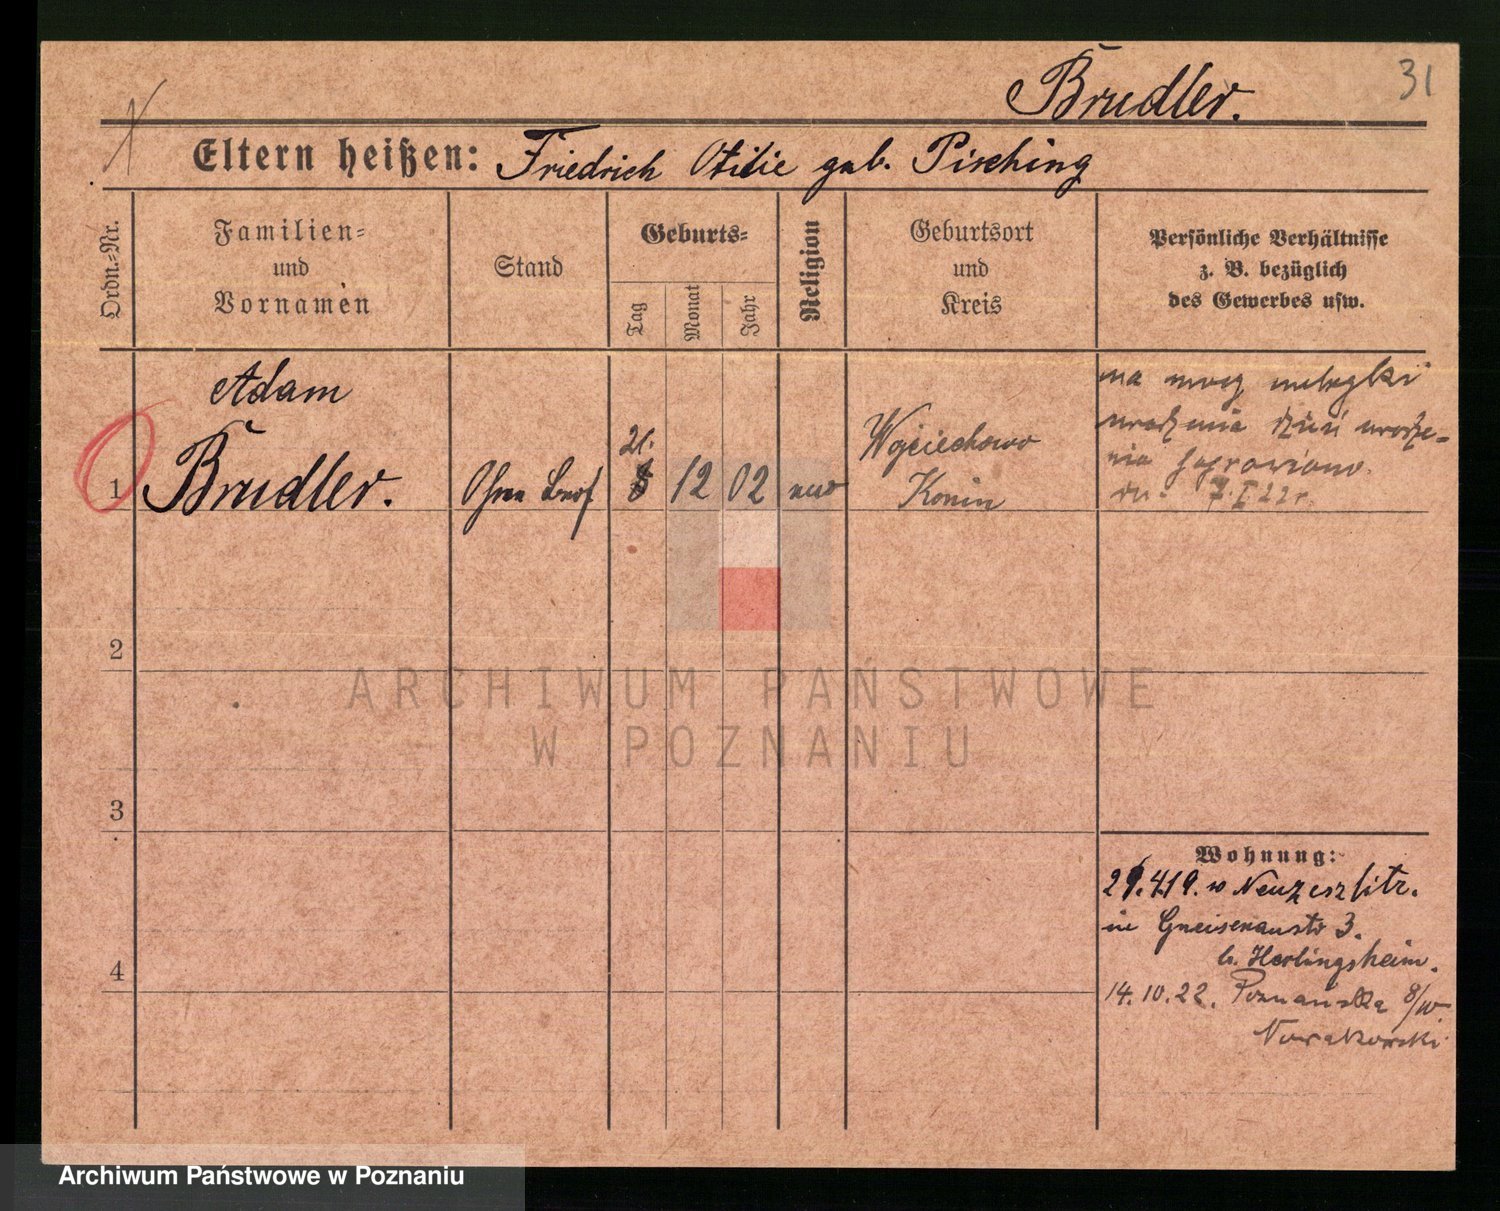 31
Brudler.
Eltern heißen: Friedrich Otilie geb. Pisching
Ordn.-Nr.
Familien-
und
Vornamen
Stand
Geburts-
Tag
Monat
Jahr
Religion
Geburtsort
und
Kreis
Persönliche Verhältnisse
z. B. bezüglich
des Gewerbes usw.
1
Adam
Brudler.
Ohne Beruf
21.
8
12
02
Wojciechowo
Konin
na mocy metryki
urodzenia dzień urodze-
nia poprawiono.
dn. 7.I 22 r.
2
3
4
Wohnung:
29.4.19. w
in Gneisenaustr 3.
b. Herlingsheim.
14.10.22. Poznańska 8/w.
Nowakowski
ARCHIWUM PAŃSTWOWE
W POZNANIU
Archiwum Państwowe w Poznaniu